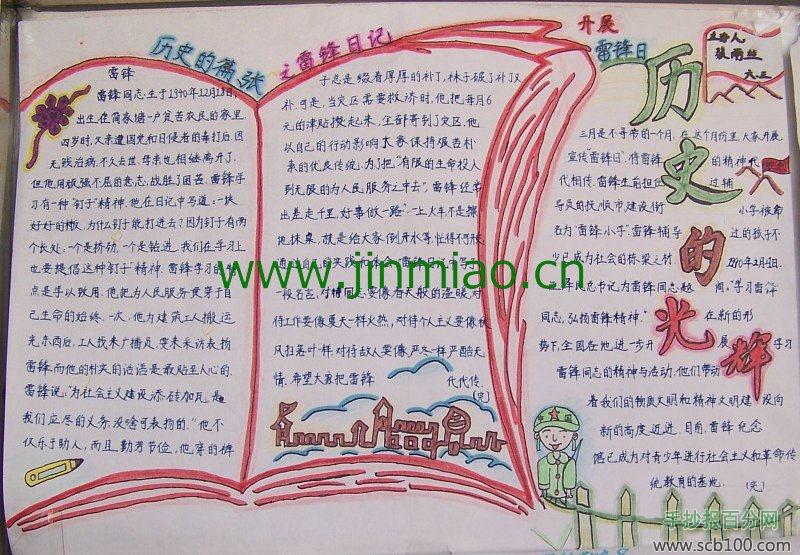 历史的篇张
之雷锋日记
开展
雷锋日
主办人:
六.三
历史的光辉
雷锋
雷锋同志,生于1940年12月18日,
出生在简家塘一户贫苦农民的家里.
四岁时,父亲遭国党和日侵者的毒打后,因
无钱治病,不久去世,母亲也相继离开了,
但他用顽强不屈的意志,战胜了困苦,雷锋学
习有一种"钉子"精神,他在日记中写道:一块
好好的木板,为什么钉子能打进去?因为钉子有两
个长处:一个是挤劲,一个是钻进,我们在学习上
也要提倡这种钉子"精神.雷锋学习的特
点是学以致用,他把为人民服务贯穿于自
己生命的始终.一次,他为建筑工人搬运
完东西后,工人找来广播员,要来采访表扬
雷锋,而他的朴实的话语是最贴至人心的,
雷锋说:"为社会主义建设添砖加瓦,是
我们应尽的义务,没啥可表扬的."他不
仅乐于助人,而且勤劳节俭,他穿的裤
子总是缀着厚厚的补丁,袜子破了补又
补.可是,当灾区需要救济时,他把每月6
元的津贴攒起来,全部寄到了灾区,他
以自己的行动影响大家保持艰苦朴
素的优良传统,为了把"有限的生命投入
到无限的为人民服务之中去",雷锋经常
出差走千里,好事做一路"一上火车不是擦
地抹桌,就是给大家倒开水等,忙得不可
一段名言,对待同志要像春天般的温暖,对
待工作要像夏天一样火热,对待个人主义要像秋
风扫落叶一样,对待敌人要像严冬一样严酷无
情.希望大家把雷锋 代代传.
(完)
三月是不寻常的一个月,在这个月份里,大家开展
宣传"雷锋日",将雷锋 的精神代
代相传.雷锋生前担任 过辅
导员的抚顺市建设街 小学被命
名为"雷锋小学".雷锋辅导 过的孩子不
少已成为社会的栋梁之材.
同志,弘扬雷锋精神." 在新的形
势下,全国各地进一步开 展 学习
雷锋同志的精神与活动.他们带动
着我们的物质文明和精神文明建设向
新的高度迈进.目前,雷锋纪念
馆已成为对青少年进行社会主义和革命传
统教育的基地. (完)
www.jinmiao.cn
手抄报百分网
www.scb100.com